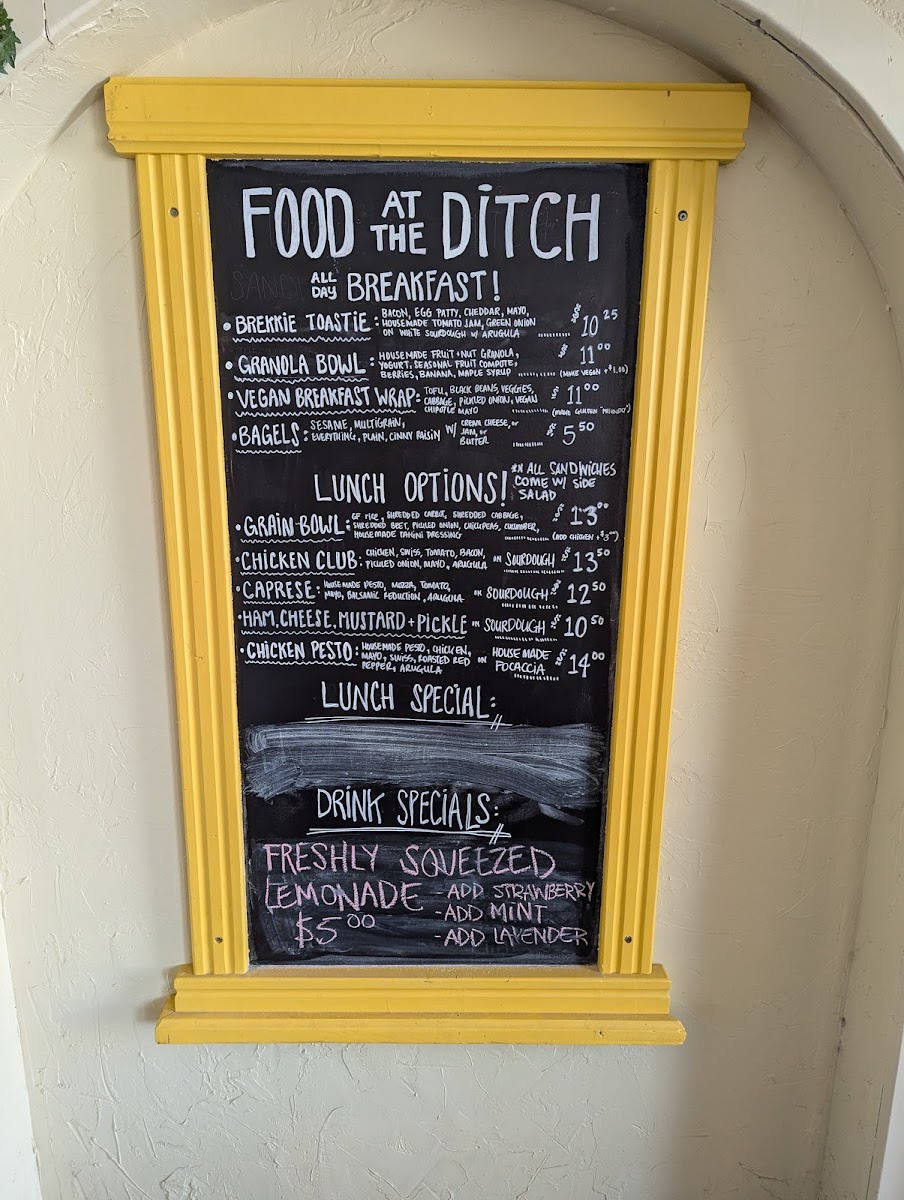 FOOD AT THE DITCH
ALL DAY BREAKFAST!
• BREKKIE TOASTIE: BACON, EGG PATTY, CHEDDAR, MAYO,
HOUSEMADE TOMATO JAM, GREEN ONION
ON WHITE SOURDOUGH W/ ARUGULA $10.25
• GRANOLA BOWL: HOUSEMADE FRUIT + NUT GRANOLA, $11.00
YOGURT, SEASONAL FRUIT COMPOTE,
BERRIES, BANANA, MAPLE SYRUP (MAKE VEGAN +$1.00)
• VEGAN BREAKFAST WRAP: TOFU, BLACK BEANS, VEGGIES, $11.00
CABBAGE, PICKLED ONION, VEGAN
CHIPOTLE MAYO
• BAGELS: SESAME, MULTIGRAIN,
EVERYTHING, PLAIN, CINNY RAISIN W/ CREAM CHEESE, or
JAM, or
BUTTER $5.50
LUNCH OPTIONS! ** ALL SANDWICHES
COME W/ SIDE
SALAD
• GRAIN BOWL: GF rice, SHREDDED CARROT, SHREDDED CABBAGE, $13.00
SHREDDED BEET, PICKLED ONION, CHICKPEAS, CUCUMBER,
HOUSEMADE TAHINI DRESSING (ADD CHICKEN +$3.00)
• CHICKEN CLUB: CHICKEN, SWISS, TOMATO, BACON,
PICKLED ONION, MAYO, ARUGULA ON SOURDOUGH $13.50
• CAPRESE: HOUSEMADE PESTO, MOZZA, TOMATO,
MAYO, BALSAMIC REDUCTION, ARUGULA ON SOURDOUGH $12.50
• HAM, CHEESE, MUSTARD + PICKLE ON SOURDOUGH $10.50
• CHICKEN PESTO: HOUSEMADE PESTO, CHICKEN,
MAYO, SWISS, ROASTED RED
PEPPER, ARUGULA ON HOUSEMADE
FOCACCIA $14.00
LUNCH SPECIAL:
DRINK SPECIALS:
FRESHLY SQUEEZED
LEMONADE - ADD STRAWBERRY
$5.00 - ADD MINT
- ADD LAVENDER